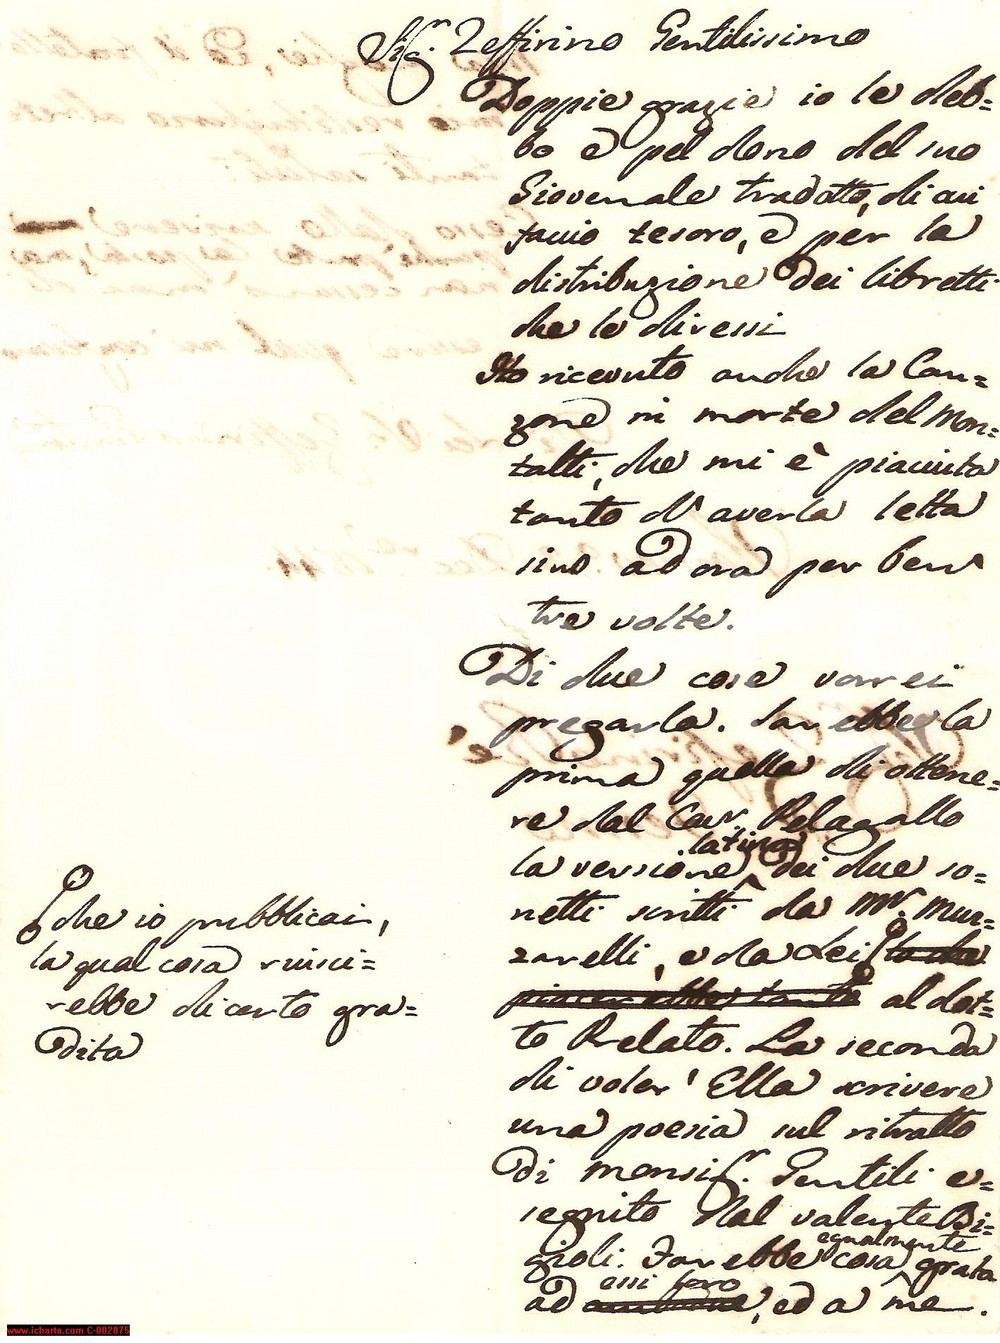 Sig.r Zeffirino Gentilissimo
Doppie grazie io le deb=
bo e pel dono del suo
Giovenale tradotto, di cui
faccio tesoro, e per la
distribuzione dei libretti
che le diressi
Ho ricevuto anche la Can=
zone in morte del Mon=
talti, che mi è piaciuta
tanto d'averla letta
sino ad ora per ben
tre volte.
Di due cose vorrei
pregarla. Sarebbe la
prima quella di ottene=
re dal Cav. Pelagallo
latina
la versione dei due so=
netti scritti da Mr. Muz=
zarelli, e da Lei
al dot=
to Prelato. La seconda
di voler' Ella scrivere
una poesia sul ritratto
di Monsig.r Gentili e=
seguito dal valente Bi=
gioli. Sarebbe egualmente cosa grata
ad essi loro, ed a me.
che io pubblicai,
la qual cosa riusci=
rebbe di certo gra=
dita
www.icharta.com C-002875